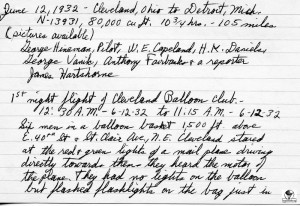 June 12, 1932 - Cleveland, Ohio to Detroit, Mich.
N-13931, 80,000 cu ft. 10 3/4 hrs. - 105 miles
(pictures available)
George Hineman, Pilot, W. E. Copeland, H. K. Daniels
George Vanik, Anthony Fairbanks & a reporter
James Hartshorne
1st night flight of Cleveland Balloon Club. -
12:30 A.M. - 6-12-32 to 11:15 A.M. - 6-12-32
Six men in a balloon basket 1,500 ft. above
E. 40th St & St. Clair Ave., N.E. Cleveland stared
at the red & green lights of a mail plane driving
directly towards them - they heard the motor of
the plane. They had no lights on the balloon
but flashed flashlights on the bag just in